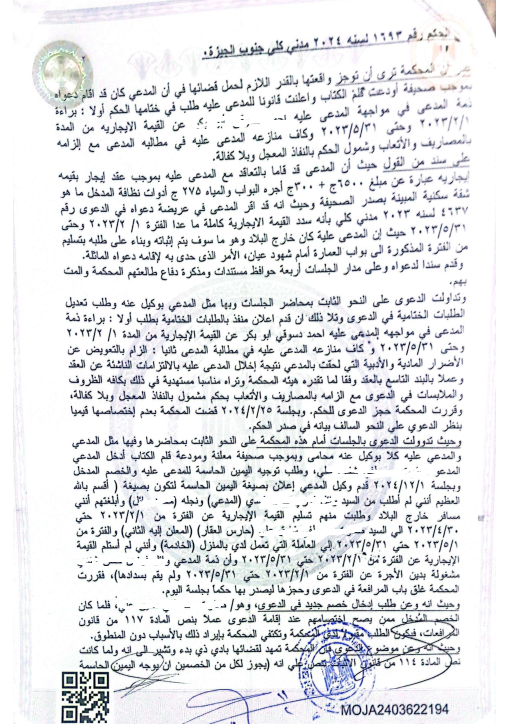 الحكم رقم ١٦٩٣ لسنه ٢٠٢٤ مدني كلي جنوب الجيزة.
المحكمة ترى أن توجز واقعتها بالقدر اللازم لحمل قضائها في أن المدعي كان قد اقام دعواه
بموجب صحيفة أودعت قلم الكتاب واعلنت قانونا للمدعى عليه طلب في ختامها الحكم أولا : براءة
ذمة المدعى في مواجهة المدعى عليه عن القيمة الايجاريه من المدة
٢٠٢٣/٢/١ وحتى ٢٠٢٣/٥/٣١ وكاف منازعه المدعى عليه في مطالبه المدعى مع إلزامه
بالمصاريف والأتعاب وشمول الحكم بالنفاذ المعجل وبلا كفالة.
على سند من القول حيث أن المدعى قد قاما بالتعاقد مع المدعى عليه بموجب عقد إيجار بقيمه
إيجاريه عبارة عن مبلغ ٦٥٠٠ج + ٣٠٠ج أجره البواب والمياه ٢٧٥ ج أدوات نظافة المدخل ما هو
شقة سكنية المبينة بصدر الصحيفة وحيث انه قد اقر المدعى في عريضة دعواه في الدعوى رقم
٤٦٣٧ لسنه ٢٠٢٣ مدني كلي بأنه سدد القيمة الايجارية كاملة ما عدا الفترة ٢٠٢٣/٢/١ وحتى
٢٠٢٣/٥/٣١ حيث إن المدعى عليه كان خارج البلاد وهو ما سوف يتم إثباته وبناء على طلبه بتسليم
من الفترة المذكورة الى بواب العمارة أمام شهود عيان، الأمر الذى حدى به لإقامه دعواه الماثلة.
وقدم سندا لدعواه وعلى مدار الجلسات أربعة حوافظ مستندات ومذكرة دفاع طالعتهم المحكمة والمت
بهم.
وتداولت الدعوى على النحو الثابت بمحاضر الجلسات وبها مثل المدعي بوكيل عنه وطلب تعديل
الطلبات الختامية في الدعوى وتلا ذلك ان قدم اعلان منفذ بالطلبات الختامية بطلب أولا : براءة ذمة
المدعى في مواجهه المدعى عليه احمد دسوقي ابو بكر عن القيمة الإيجارية من المدة ٢٠٢٣/٢/١
وحتى ٢٠٢٣/٥/٣١ و كاف منازعه المدعى عليه في مطالبة المدعى ثانيا : الزام بالتعويض عن
الأضرار المادية والأدبية التي لحقت بالمدعى نتيجة إخلال المدعى عليه بالالتزامات الناشئة عن العقد
وعملا بالبند التاسع بالعقد وفقا لما تقدره هيئه المحكمة وتراه مناسبا مستهدية في ذلك بكافه الظروف
والملابسات في الدعوى مع الزامه بالمصاريف والأتعاب بحكم مشمول بالنفاذ المعجل وبلا كفالة،
وقررت المحكمة حجز الدعوى للحكم. وبجلسة ٢٠٢٤/٢/٢٥ قضت المحكمة بعدم إختصاصها قيميا
بنظر الدعوى علي النحو السالف بيانه في صدر الحكم.
وحيث تدوولت الدعوى بالجلسات أمام هذه المحكمة على النحو الثابت بمحاضرها وفيها مثل المدعي
والمدعى عليه كلا بوكيل عنه محامى وبموجب صحيفة معلنة ومودعة قلم الكتاب أدخل المدعي
المدعو وطلب توجيه اليمين الحاسمة للمدعى عليه والخصم المدخل
وبجلسة ٢٠٢٤/١٢/١ قدم وكيل المدعي إعلان بصيغة اليمين الحاسمة لتكون بصيغة ( أقسم بالله
العظيم أنني لم أطلب من السيد (المدعي) ونجله وأبلغتهم أنني
مسافر خارج البلاد وطلبت منهم تسليم القيمة الإيجارية عن الفترة من ٢٠٢٣/٢/١ حتي
٢٠٢٣/٤/٣٠ الي السيد (حارس العقار) (المعلن إليه الثاني) والفترة من
٢٠٢٣/٥/١ حتي ٢٠٢٣/٥/٣١ إلي العاملة التي تعمل لدي بالمنزل (الخادمة) وأنني لم أستلم القيمة
الإيجارية عن الفترة من ٢٠٢٣/٢/١ حتي ٢٠٢٣/٥/٣١ وأن ذمة المدعي
مشغولة بدين الأجرة عن الفترة من ٢٠٢٣/٢/١ حتي ٢٠٢٣/٥/٣١ ولم يقم بسدادها)، فقررت
المحكمة غلق باب المرافعة في الدعوى وحجزها ليصدر بها حكما بجلسة اليوم.
وحيث انه وعن طلب إدخال خصم جديد في الدعوى، وهو/ فلما كان
الخصم المدخل ممن يصح إختصامهم عند إقامة الدعوى عملا بنص المادة ١١٧ من قانون
المرافعات، فيكون الطلب مقبول لدي المحكمة وتكتفي المحكمة بإيراد ذلك بالأسباب دون المنطوق.
وحيث انه وعن موضوع الدعوى فإن المحكمة تمهد لقضائها بادي ذي بدء وتشير الى انه ولما كانت
نص المادة ١١٤ من قانون الإثبات تنص علي انه (يجوز لكل من الخصمين ان يوجه اليمين الحاسمة
MOJA2403622194